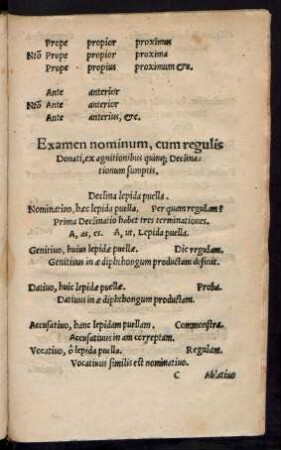 Prope propior proximus
Ntõ Prope propior proxima
Prope propius proximum &c.
Ante anterior
Ntõ Ante anterior
Ante anterius, &c.
Examen nominum, cum regulis
Donati, ex agnitionibus quinq; Declina-
tionum sumptis.
Declina lepida puella.
Nominatiuo, hæc lepida puella. Per quam regulam?
Prima Declinatio habet tres terminationes.
A, as, es. A, ut, Lepida puella.
Genitiuo, huius lepidæ puellæ. Dic regulam.
Genitiuus in æ diphthongum productam desinit.
Datiuo, huic lepidæ puellæ. Proba.
Datiuus in æ diphthongum productam.
Accusatiuo, hanc lepidam puellam. Commonstra.
Accusatiuus in am correptam.
Vocatiuo, ô lepida puella. Regulam.
Vocatiuus similis est nominatiuo.
C Ablatiuo